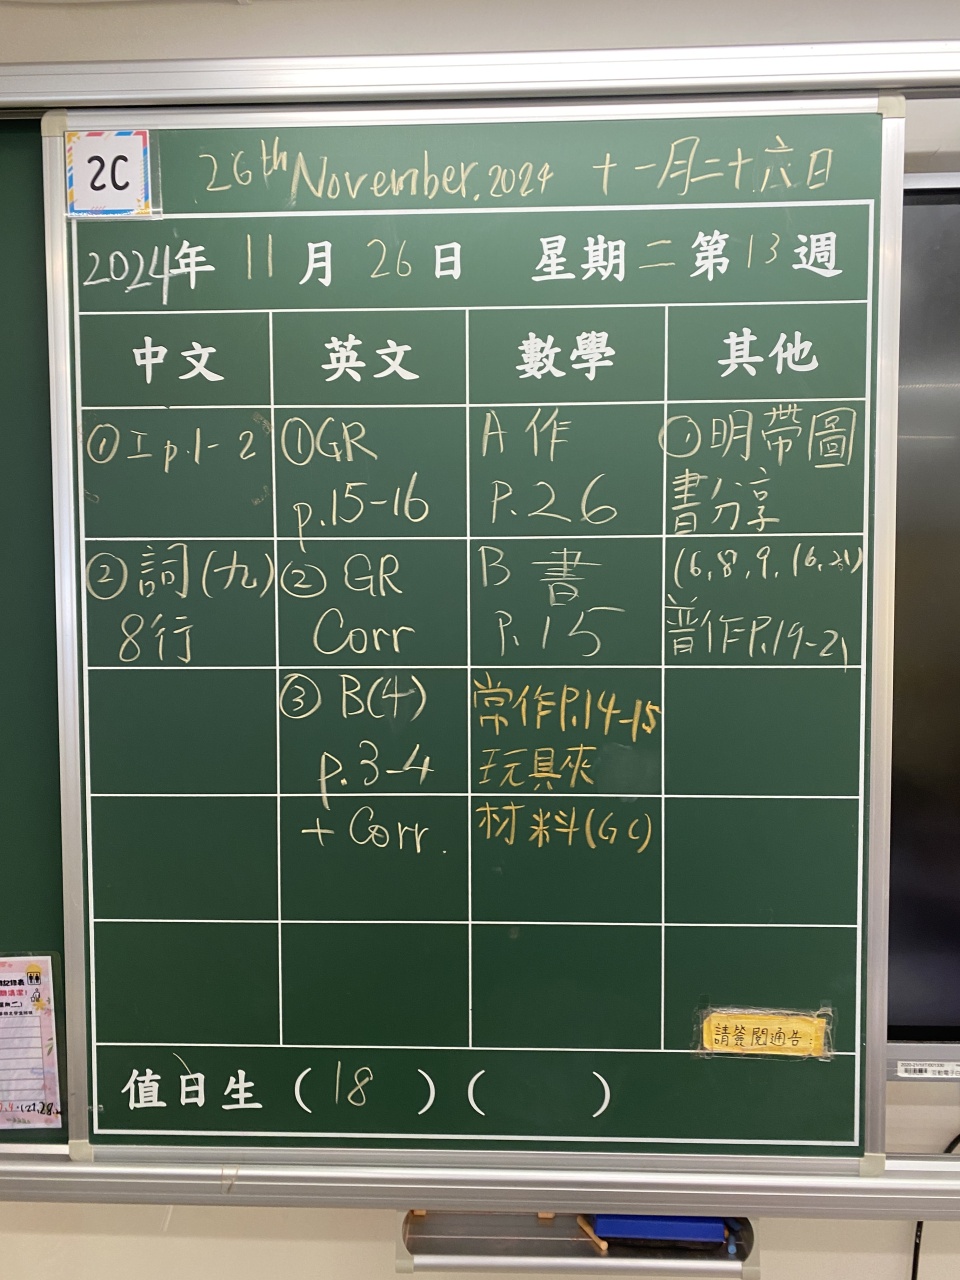 2C
26th November, 2024 十一月二十六日
2024年 11 月 26 日 星期二第13週
中文
英文
數學
其他
① 工 p.1-2
② 詞(九)
8行
① GR
p.15-16
② GR
Corr
③ B(4)
p.3-4
+ Corr.
A 作
P.26
B 書
P.15
常作P.14-15
玩具夾
材料(GC)
① 明帶圖
書分享
(6,8,9,16,21)
普作P.19-21
請簽閱通告:
值日生 (18) ( )